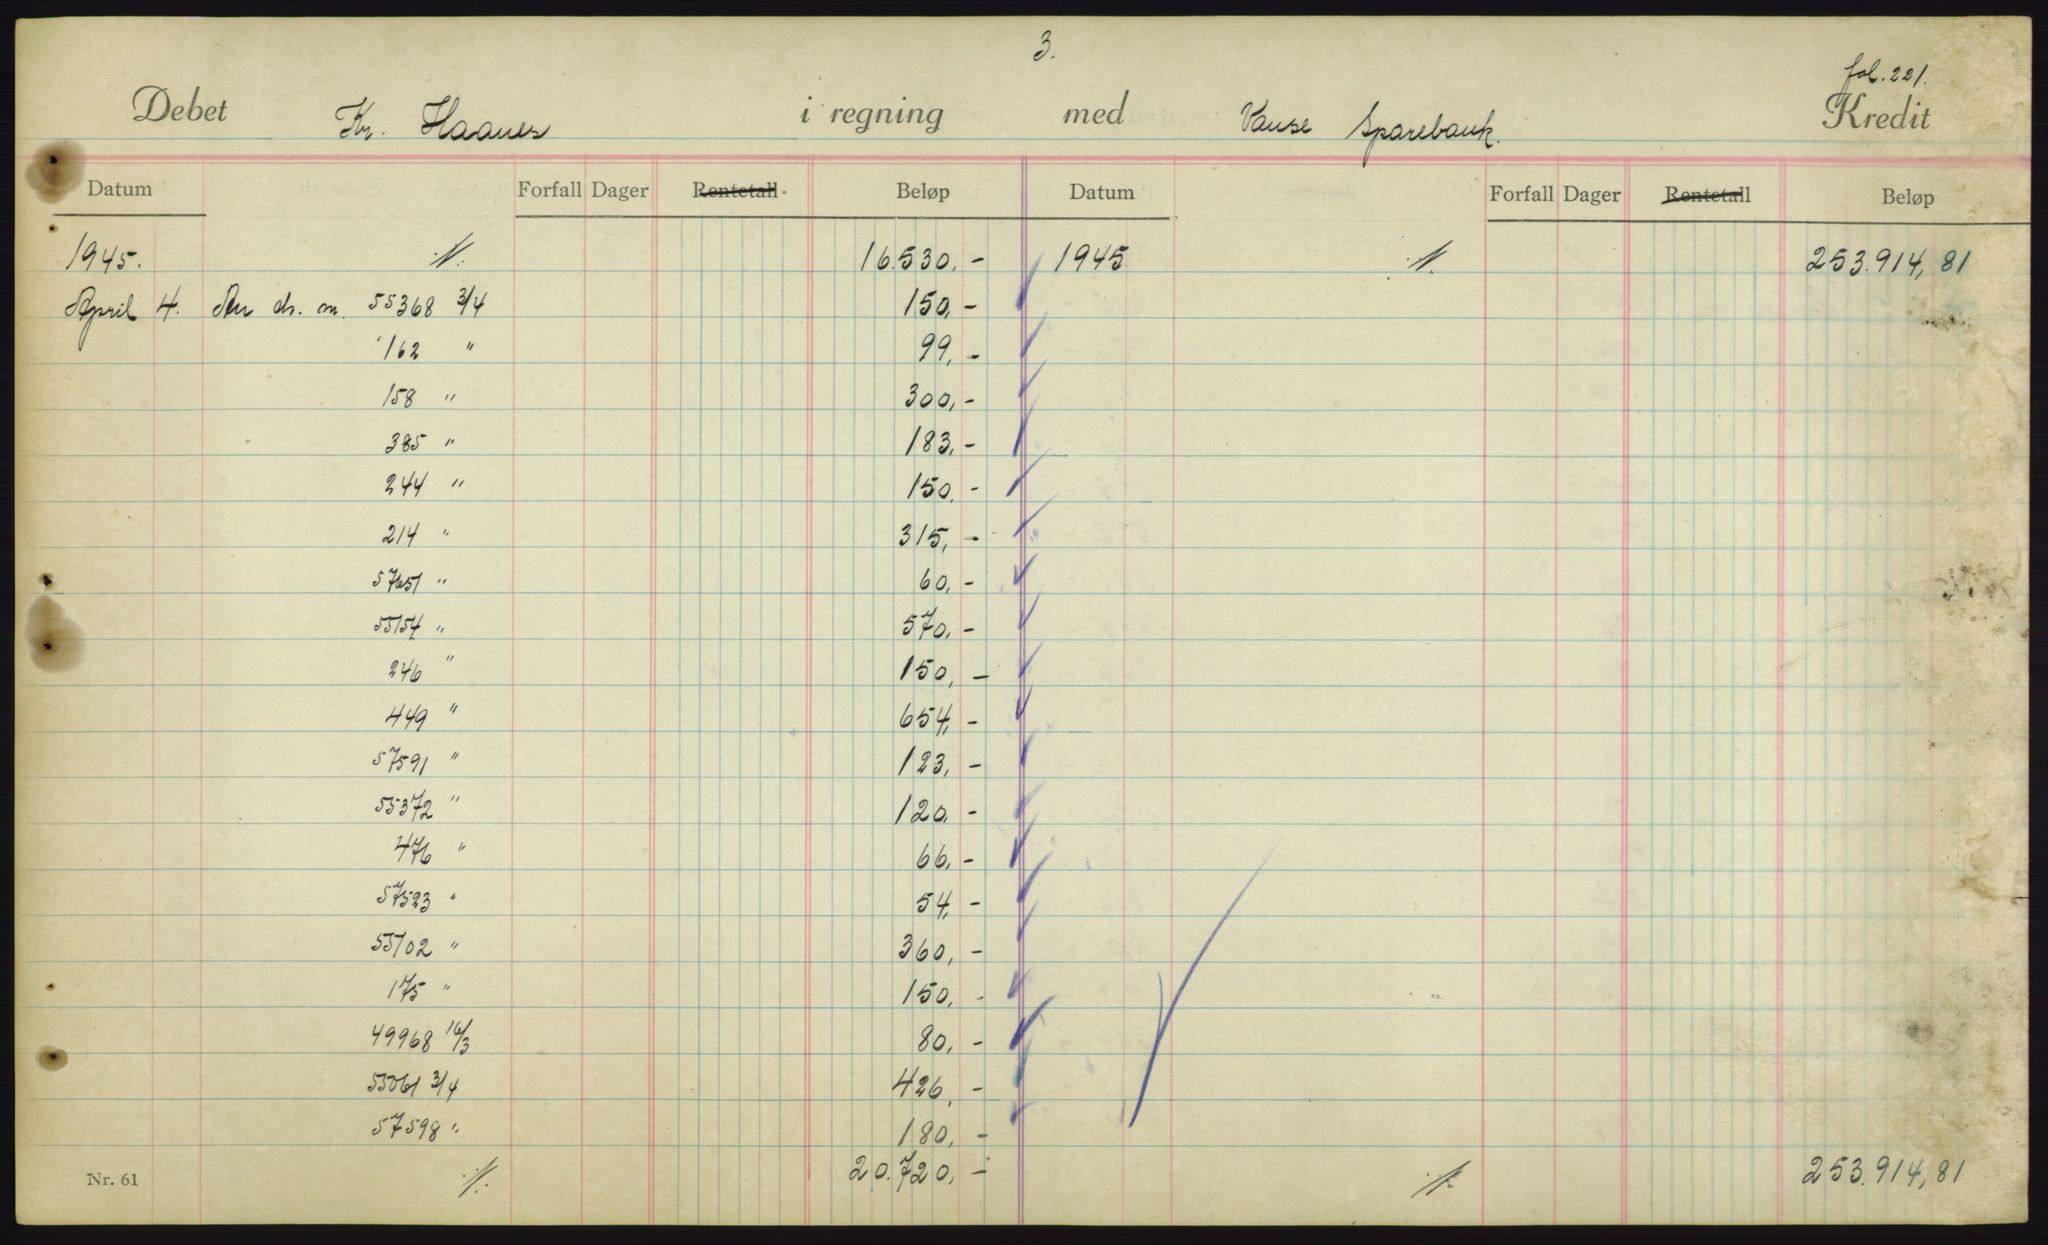 3.
fol. 221.
Debet Kr. Haanes i regning med Vanse Sparebank. Kredit
Datum Forfall Dager Rentetall Beløp Datum Forfall Dager Rentetall Beløp
1945. 16.530,- 1945 253.914,81
April 4. 55368 3/4 150,-
162 " 99,-
158 " 300,-
385 " 183,-
244 " 150,-
214 " 315,-
57651 " 60,-
55154 " 570,-
246 " 150,-
449 " 654,-
57591 " 123,-
55372 " 120,-
476 " 66,-
57523 " 54,-
55102 " 360,-
175 " 150,-
49968 16/3 80,-
55061 3/4 426,-
57598 " 180,-
Nr. 61 20.720,- 253.914,81